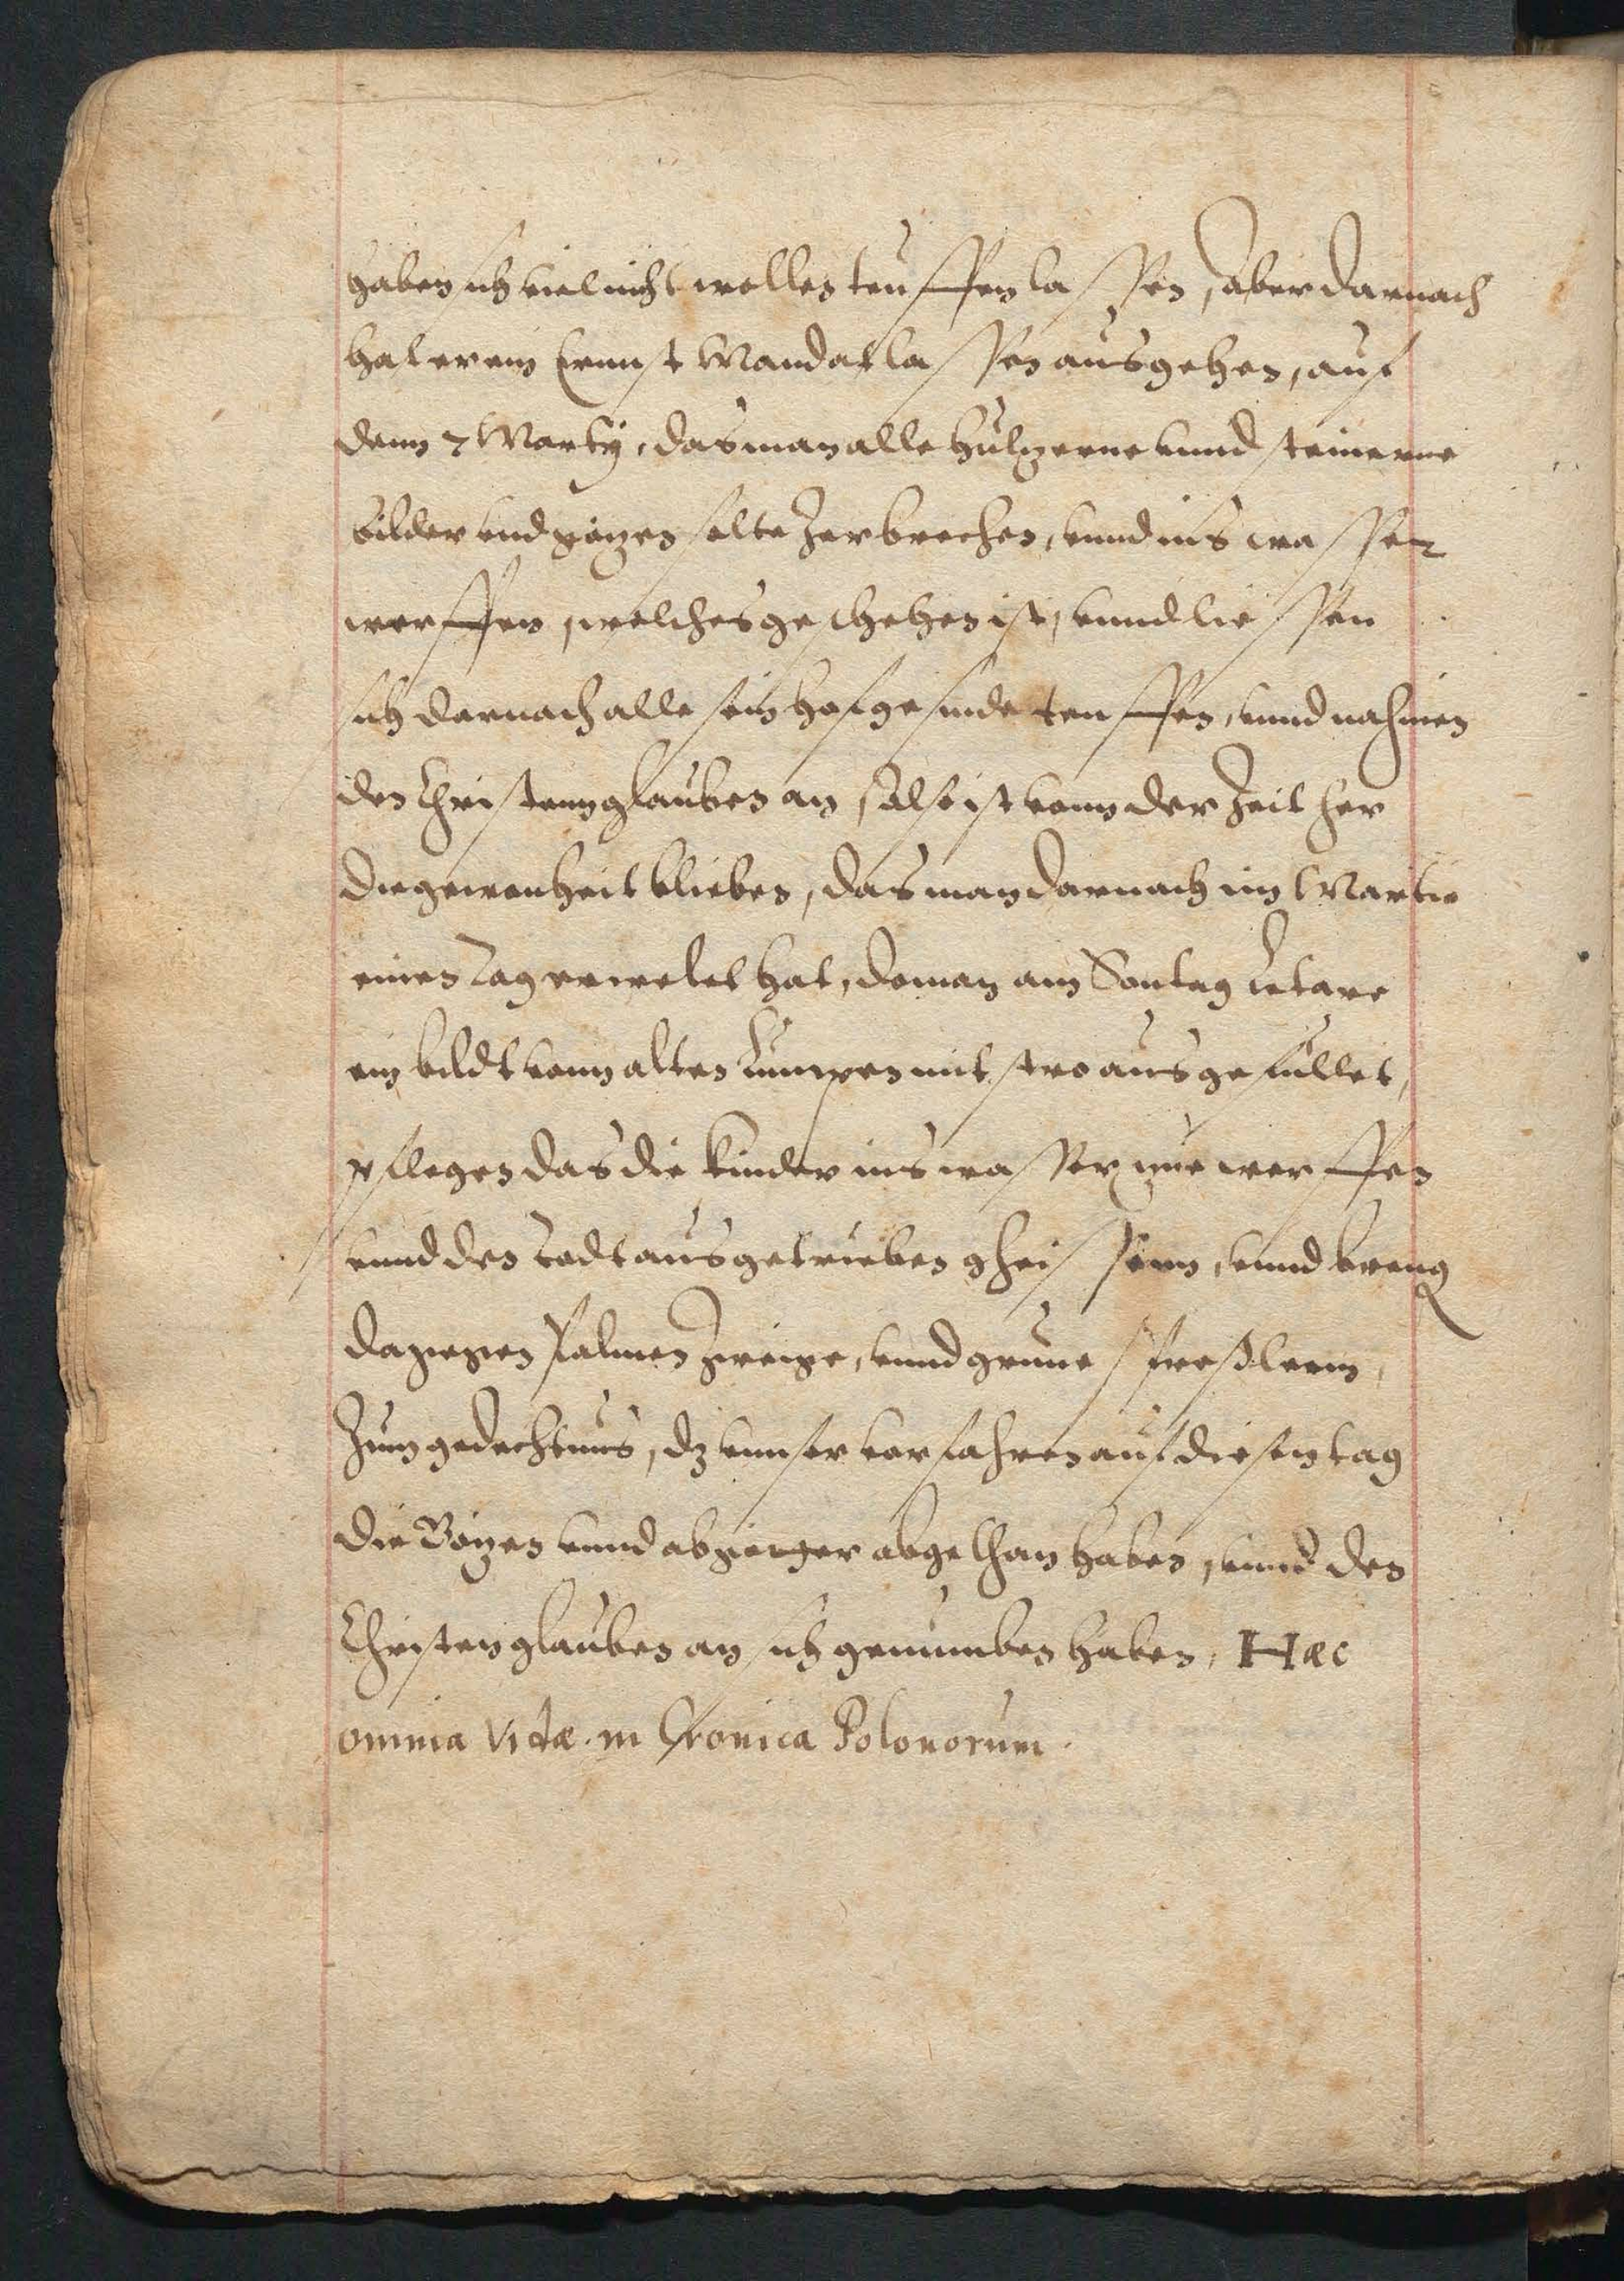 haben sich viel nicht wollen teuffen lassen, aber darnach
hat er ein Ernnst Mandat lassen ausgehen, auf
denn 7 Marty, das man alle hultzerne vnnd steinerne
bilder vnd götzen solte zerbrechen, vnnd ins wasser
werffen, welches geschehen ist, vnnd liessen
sich darnach alle sein hofgesinde teuffen, vnnd nahmen
den Christenn glauben an, also ist vonn der Zeit her
die gewonheit blieben, das man darnach im Martio
einen tag erwelet hat, do man am Sontag Letare
ein bildt vonn alten Lumpen mit stro ausgefullet,
pflegen das die kinder ins wasser zue werffen
vnnd den todt ausgetrieben gheissenn, vnnd breng
dagegen Palmen Zweige, vnnd grune sproßlein,
Zum gedechtnus, dz vnnser vorfahren auf diesen tag
die Götzen vnnd abgötter abgethan haben, vnnd den
Christen glauben an sich genumben haben, Hæc
omnia Vidæ. in Cronica Polonorum.